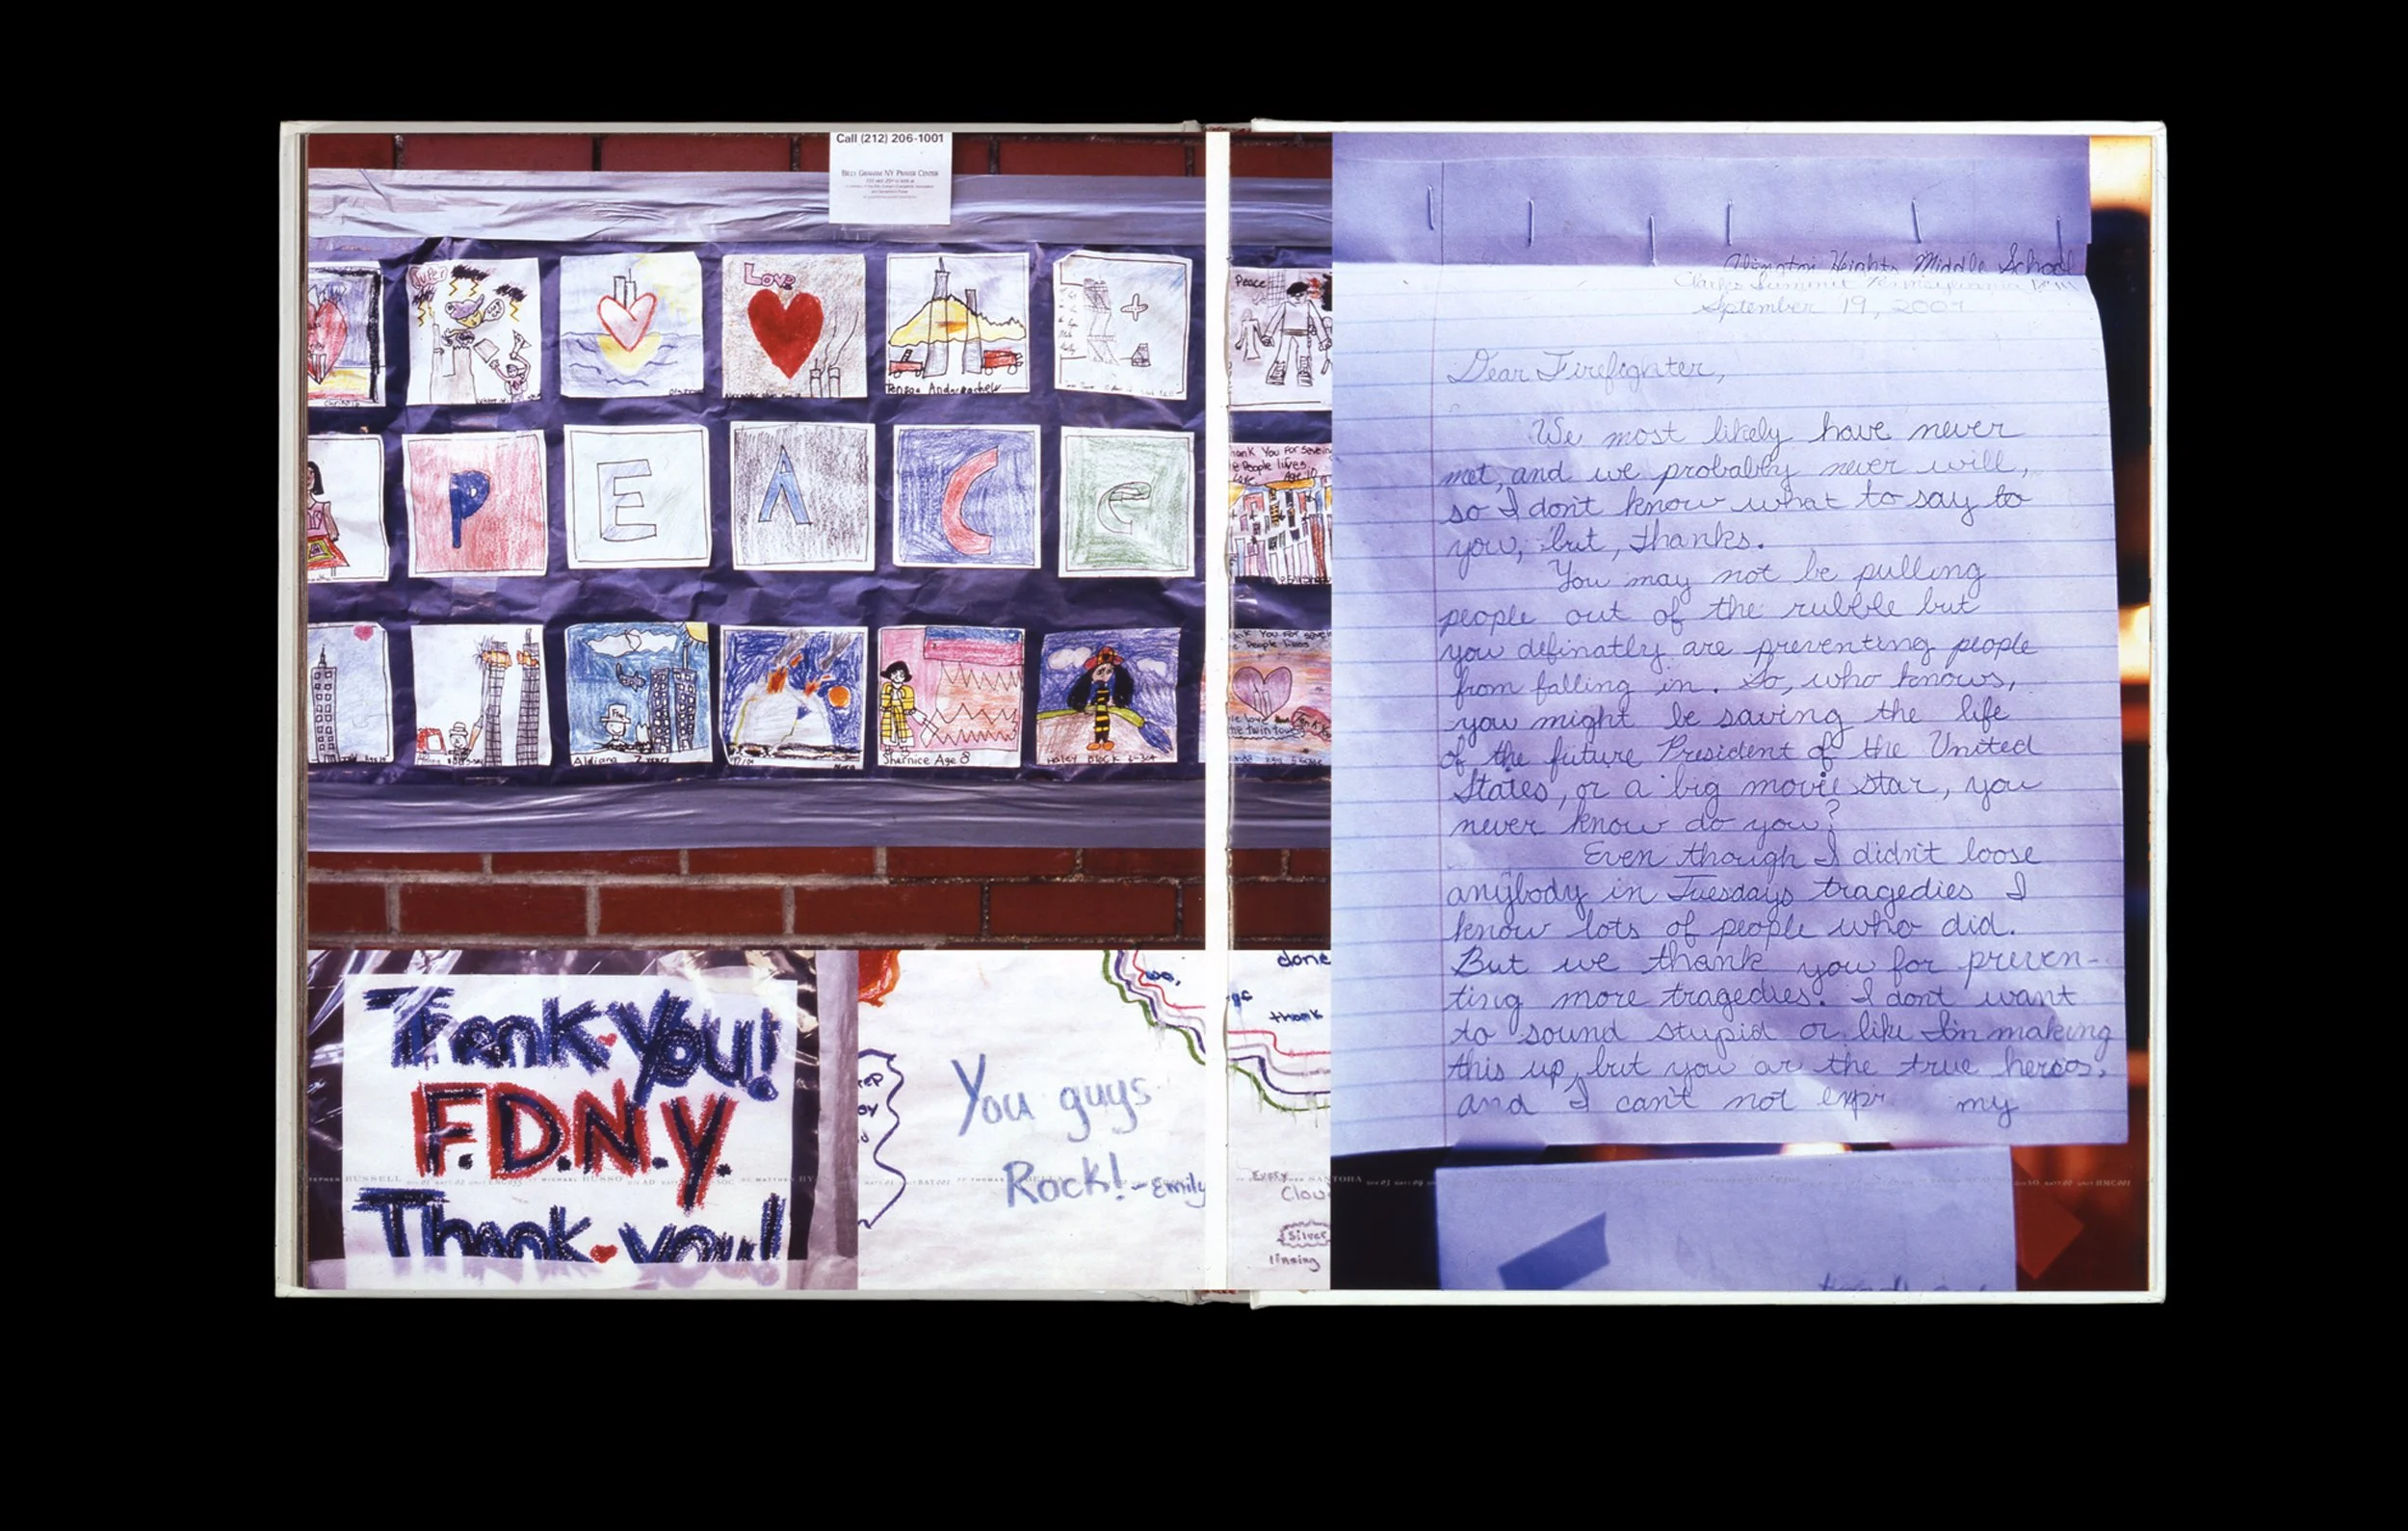 Call (212) 206-1001
BILLY GRAHAM NY PRAYER CENTER
Super
LOVE
Peace
P E A C e
Thank You For
People lives
Aldiana 7 years
Sharnice Age 8
Haley
Thank You!
F.D.N.Y.
Thank you!
You guys
Rock! - Emily
done
thank
Every
Clou
Silver
lining
RUSSELL
MICHAEL RUSSO
SANTORA
Abington Heights Middle School
Clarks Summit Pennsylvania
September 19, 2001
Dear Firefighter,
We most likely have never
met, and we probably never will,
so I don't know what to say to
you, but, thanks.
You may not be pulling
people out of the rubble but
you definatly are preventing people
from falling in. So, who knows,
you might be saving the life
of the future President of the United
States, or a big movie star, you
never know do you?
Even though I didn't loose
anybody in Tuesdays tragedies I
know lots of people who did.
But we thank you for preven-
ting more tragedies. I dont want
to sound stupid or like I'm making
this up, but you ar the true heroes,
and I can't not expr my